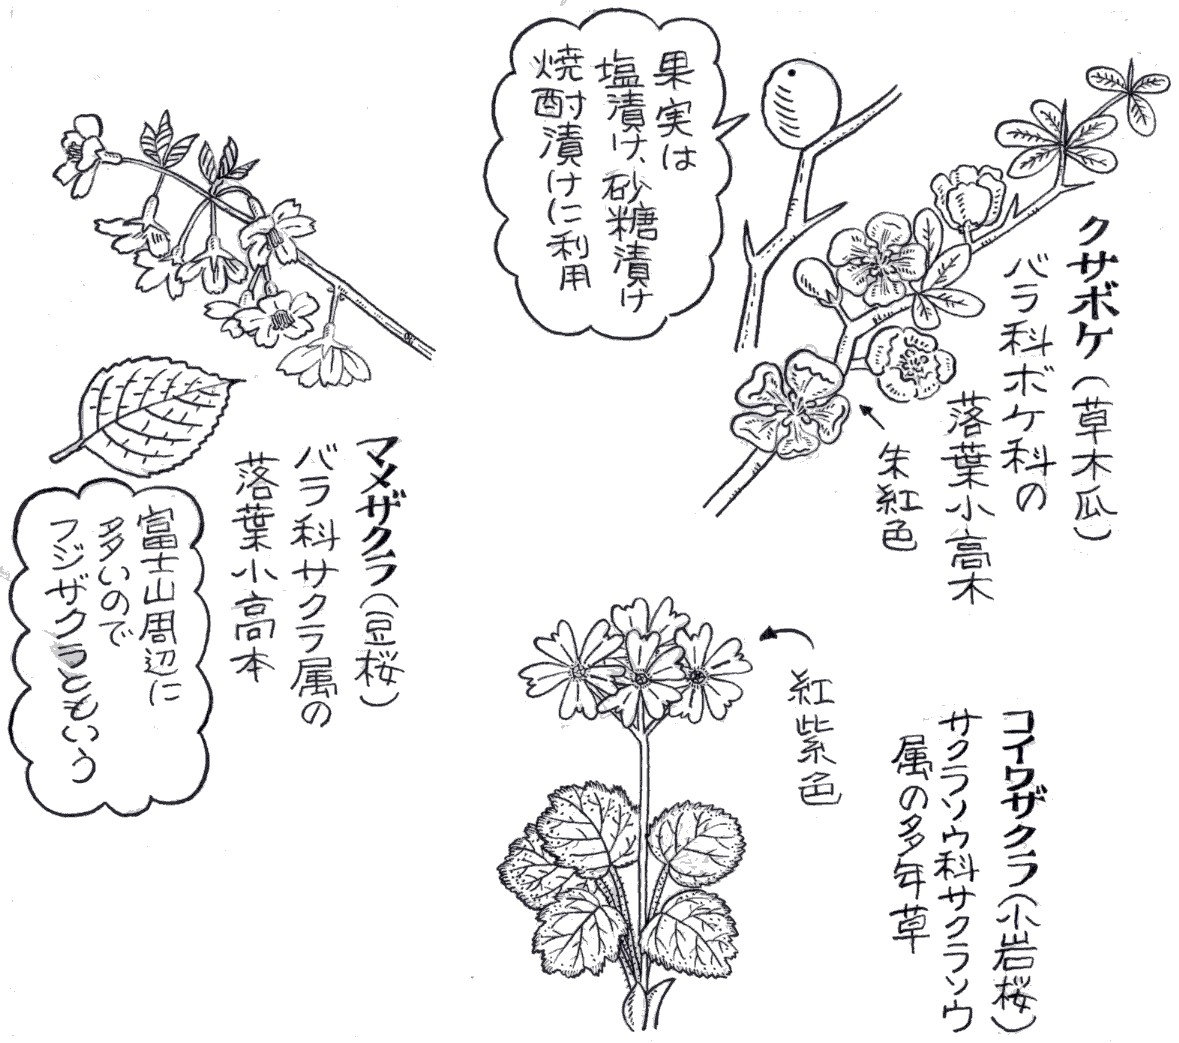 クサボケ(草木瓜)
バラ科ボケ科の
落葉小高木
朱紅色
果実は
塩漬け、砂糖漬け
焼酎漬けに利用
マメザクラ(豆桜)
バラ科サクラ属の
落葉小高本
富士山周辺に
多いので
フジザクラともいう
コイワザクラ(小岩桜)
サクラソウ科サクラソウ
属の多年草
紅紫色